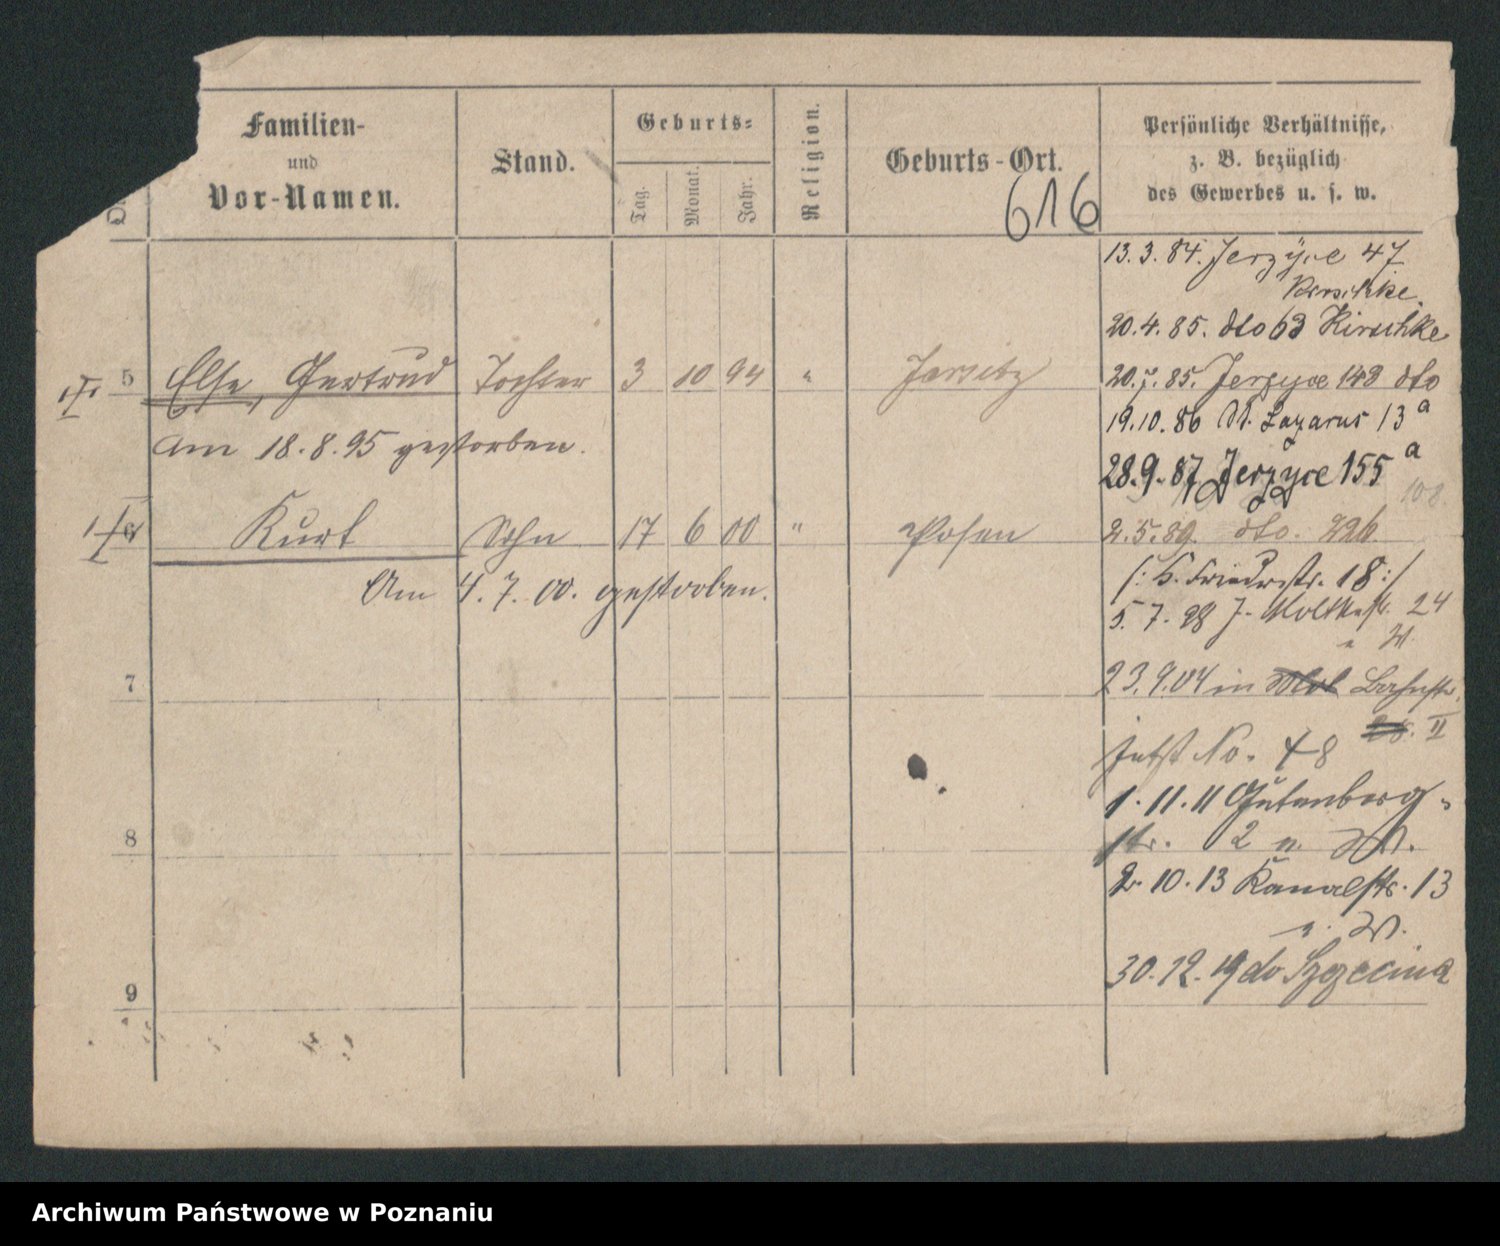 Familien-
und
Vor-Namen.
Stand.
Geburts-
Tag.
Monat.
Jahr.
Religion.
Geburts-Ort.
616
Persönliche Verhältnisse,
z. B. bezüglich
des Gewerbes u. s. w.
13. 3. 84. Jerzyce 47
20. 4. 85. dto 63 Kirschke
5 Else, Gertrud Tochter 3 10 94 " Jersitz
20. 7. 85. Jerzyce 143 dto
am 18. 8. 95 gestorben.
19. 10. 86 St. Lazarus 13 a
28. 9. 87 Jerzyce 155 a
108.
Kurt Sohn 17 6 00 " Posen
2. 5. 89. dto. 226.
Am 4. 7. 00. gestorben.
18 :/
5. 7. 98 J. Moltkestr. 24
u W.
7
23. 9. 04 in Bahnstr.
II
jetzt No. 48
1. 11. 11 Gutenberg-
8
str. 2 u. W.
2. 10. 13 Kanalstr. 13
u. W.
9
30. 12. 19 do Szczecina
Archiwum Państwowe w Poznaniu